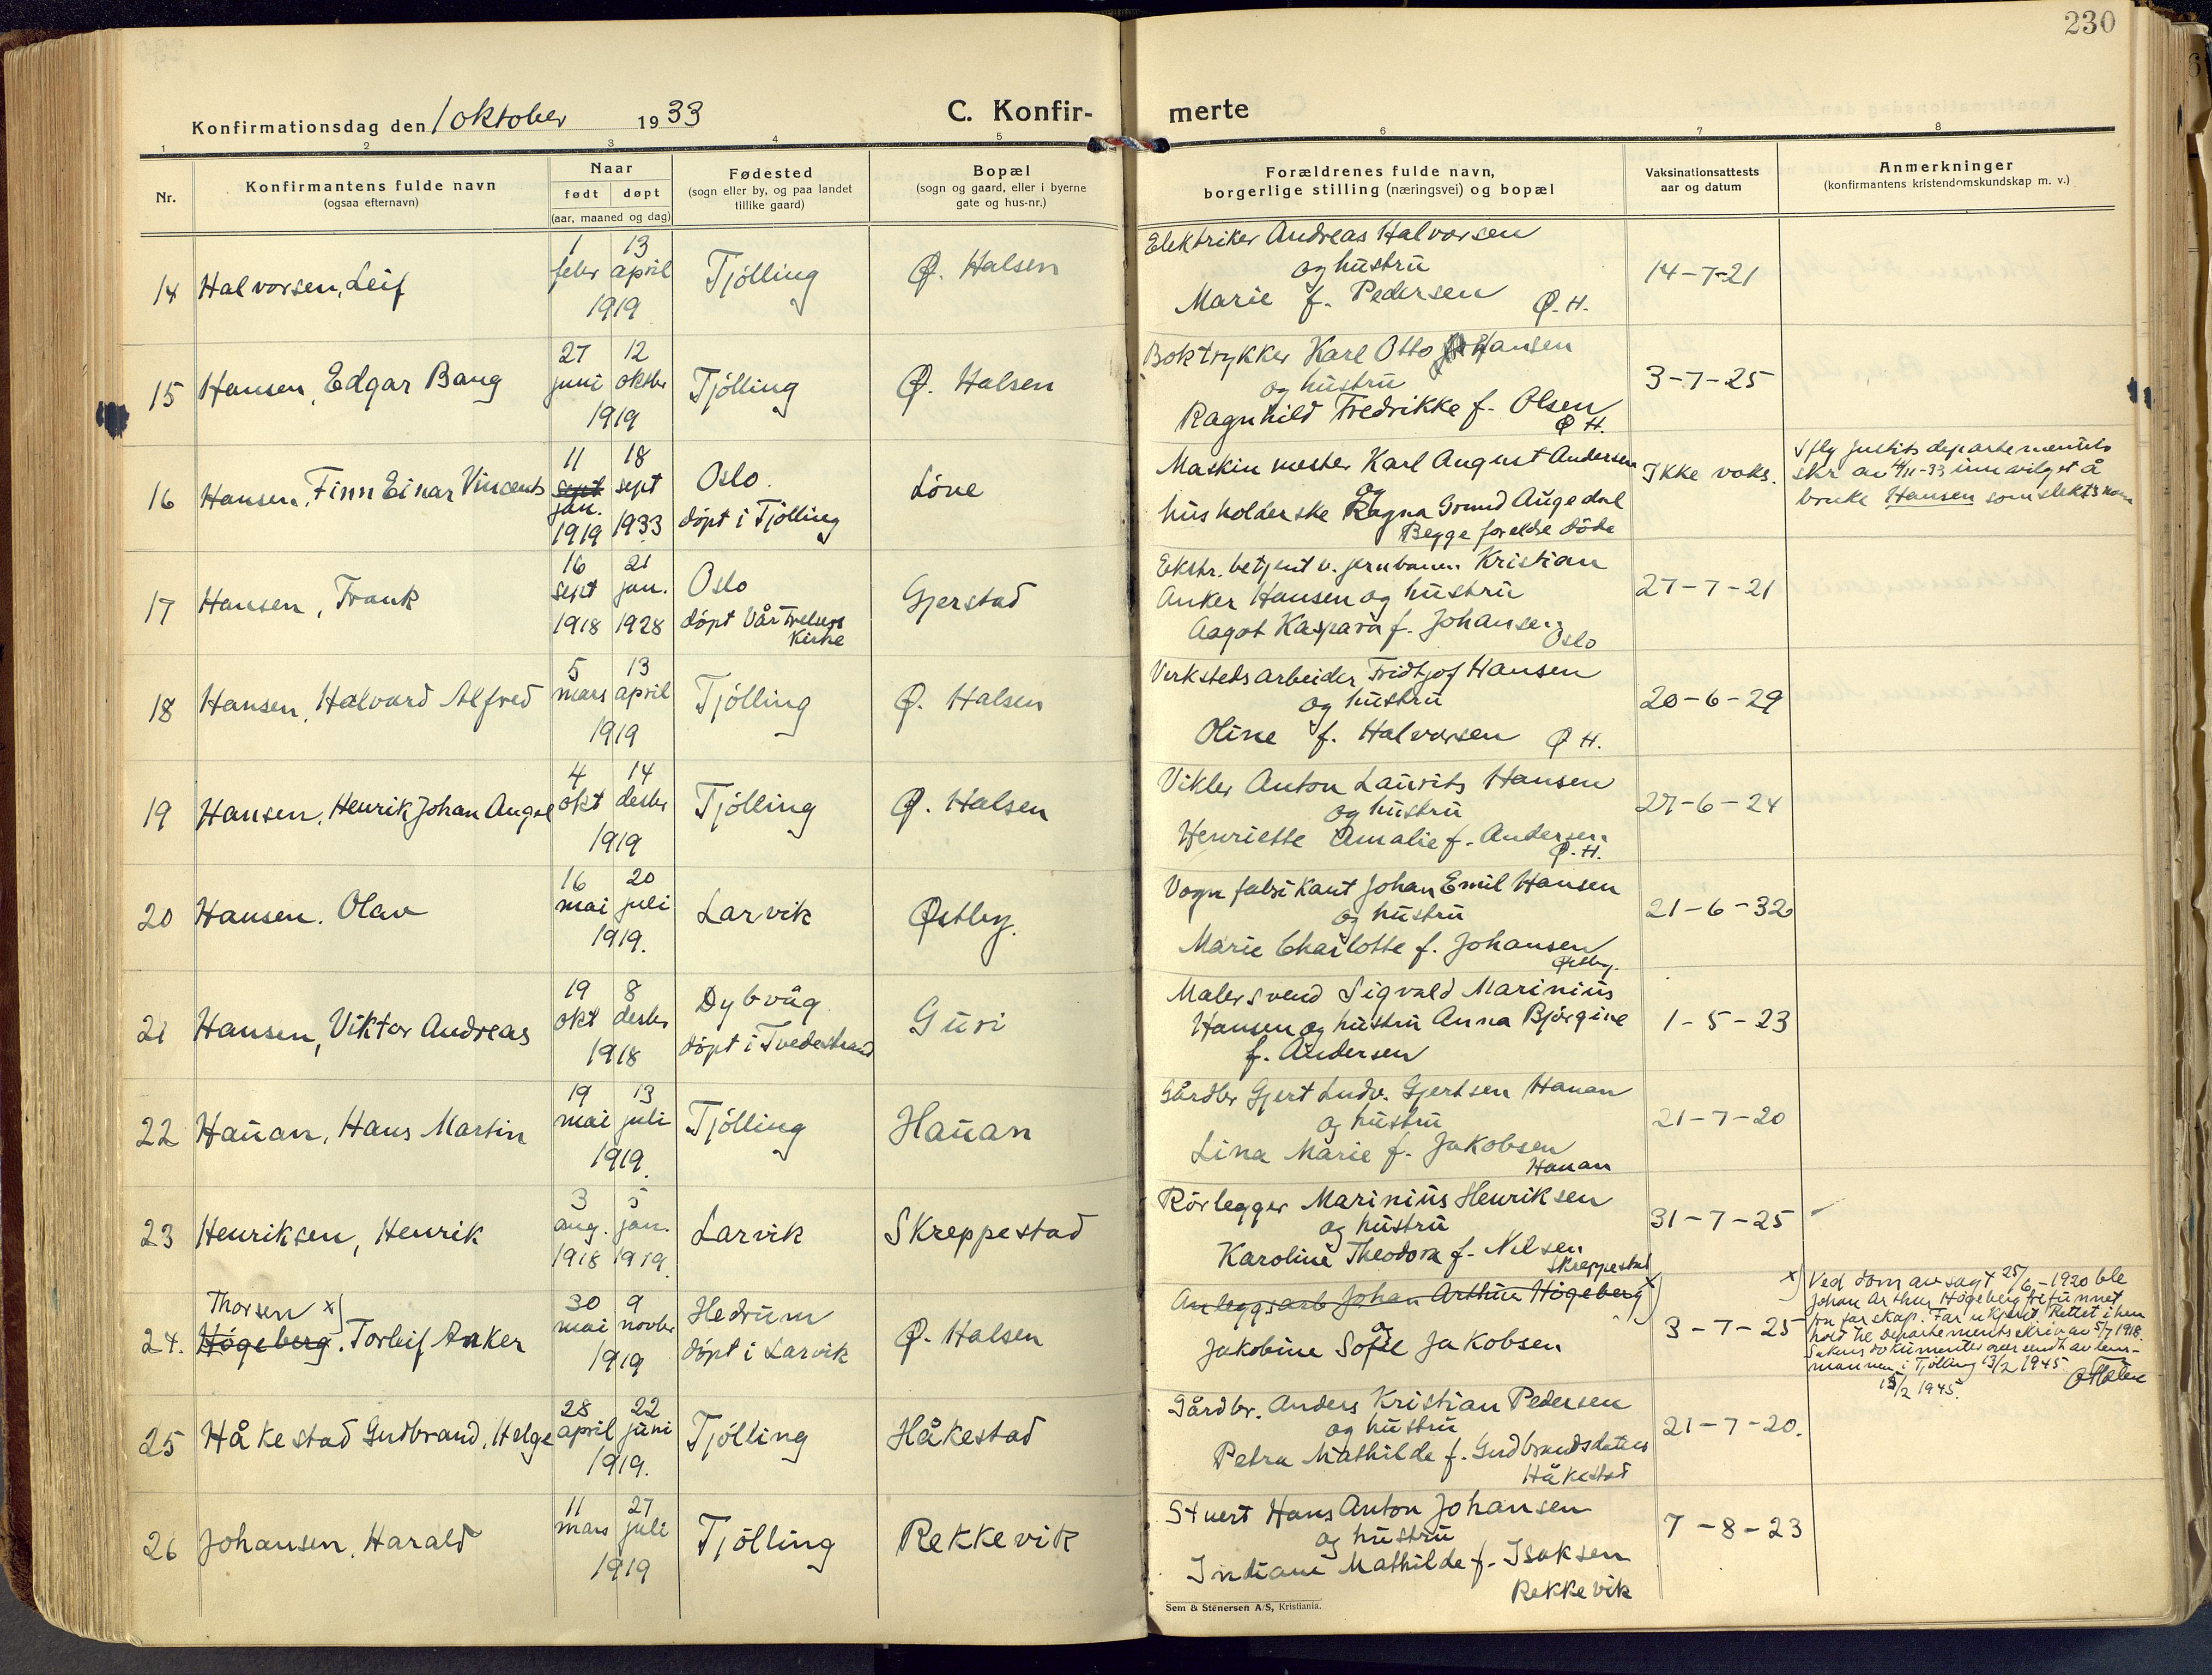 230
Konfirmationsdag den 1 oktober 1933
C. Konfir-
merte
1 2 3 4 5 6 7 8
Nr.
Konfirmantens fulde navn
(ogsaa efternavn)
Naar
født døpt
(aar, maaned og dag)
Fødested
(sogn eller by, og paa landet
tillike gaard)
Bopæl
(sogn og gaard, eller i byerne
gate og hus-nr.)
Forældrenes fulde navn,
borgerlige stilling (næringsvei) og bopæl
Vaksinationsattests
aar og datum
Anmerkninger
(konfirmantens kristendomskundskap m. v.)
14 Halvorsen, Leif
1 13
febr april
1919
Tjölling
Ø. Halsen
Elektriker Andreas Halvorsen
og hustru
Marie f. Pedersen Ø. H.
14-7-21
15 Hansen, Edgar Bang
27 12
juni oktbr
1919
Tjölling
Ø. Halsen
Boktrykker Karl Otto Hansen
og hustru
Ragnhild Fredrikke f. Olsen
Ø H.
3-7-25
16 Hansen, Finn Einar Vincents
11 18
sept sept
jan.
1919 1933
Oslo.
döpt i Tjölling
Löve
Maskinmester Karl August Andersen
og
husholderske Ragna Grund Augedal
Begge foreldre döde
Ikke vaks.
Iflg Justitsdepartementets
skr av 4/11-33 innvilget å
bruke Hansen som slektsnavn
17 Hansen, Frank
16 21
sept jan.
1918 1928
Oslo
döpt Vår Frelsers
Kirke
Gjerstad
Ekstr. betjent v. jernbanen Kristian
Anker Hansen og hustru
Aagot Kaspara f. Johansen
Oslo
27-7-21
18 Hansen, Halvard Alfred
5 13
mars april
1919
Tjölling
Ø. Halsen
Verkstedsarbeider Fridtjof Hansen
og hustru
Oline f. Halvorsen Ø H.
20-6-29
19 Hansen, Henrik Johan Angel
4 14
okt desbr
1919
Tjölling
Ø. Halsen
Vikler Anton Laurits Hansen
og hustru
Henriette Amalie f. Andersen
Ø. H.
27-6-24
20 Hansen. Olav
16 20
mai juli
1919.
Larvik
Østby.
Vognfabrikant Johan Emil Hansen
og hustru
Marie Charlotte f. Johansen
Østby.
21-6-32
21 Hansen, Viktor Andreas
19 8
okt desbr
1918
Dybvåg
döpt i Tvedestrand
Guri
Malersvend Sigvald Marinius
Hansen og hustru Anna Björgine
f. Andersen
1-5-23
22 Hauan, Hans Martin
19 13
mai juli
1919.
Tjölling
Hauan
Gårdbr Gjert Ludv. Gjertsen Hauan
og hustru
Lina Marie f. Jakobsen
Hauan
21-7-20
23 Henriksen, Henrik
3 5
aug. jan.
1918 1919.
Larvik
Skreppestad
Rörlegger Marinius Henriksen
og hustru
Karoline Theodora f. Nilsen
Skreppestad
31-7-25
Thorsen x)
24. Högeberg. Torleif Anker
30 9
mai novbr
1919
Hedrum
döpt i Larvik
Ø. Halsen
Anleggsarb Johan Arthur Högeberg x)
og
Jakobine Sofie Jakobsen
3-7-25
x) Ved dom avsagt 25/6-1920 ble
Johan Arthur Högeberg frifunnet
for farskap. Far ukjent. Rettet i hen
hold til Departementsskriv av 5/7 1918.
Sakens dokumenter oversendt av lens-
mannen i Tjölling 13/2 1945
15/2 1945.
25 Håkestad Gudbrand, Helge
28 22
april juni
1919.
Tjölling
Håkestad
Gårdbr. Anders Kristian Pedersen
og hustru
Petra Mathilde f. Gudbrandsdatter
Håkestad
21-7-20.
26 Johansen, Harald
11 27
mars juli
1919
Tjölling
Rekkevik
Stuert Hans Anton Johansen
og hustru
Indiane Mathilde f. Isaksen
Rekkevik
7-8-23
Sem & Stenersen A/S, Kristiania.